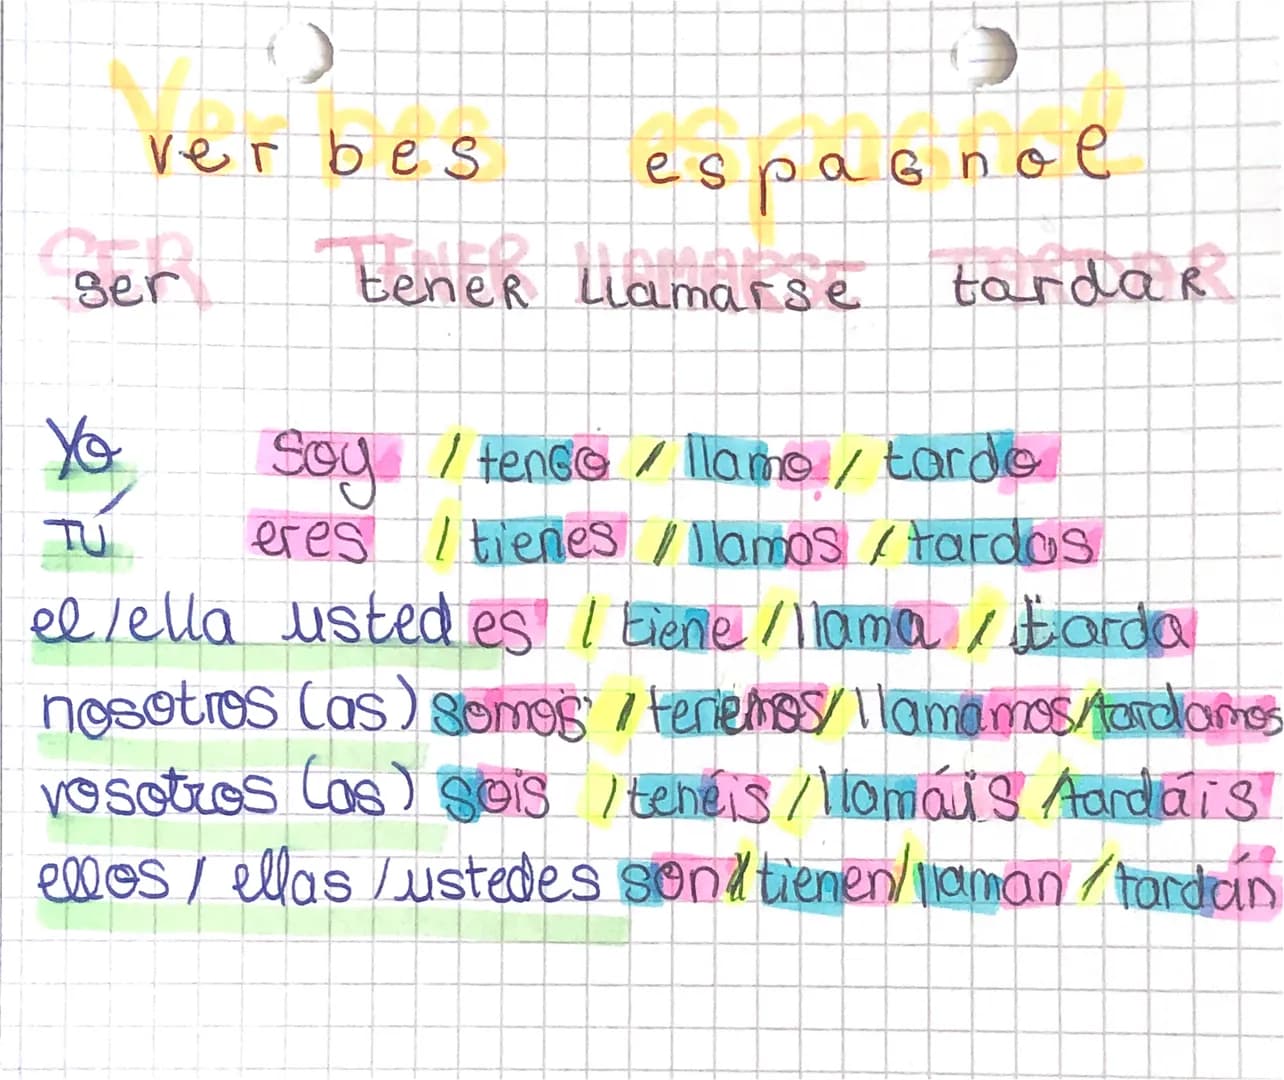 Verbes espagnol
ser tener llamarse tardar
Yo soy / tengo / llamo / tardo
TÚ eres / tienes / llamas / tardas
el/ella usted es / tiene / llama / tarda
nosotros (as) somos / tenemos / llamamos / tardamos
vosotros (as) sois / tenéis / llamáis / tardáis
ellos / ellas / ustedes son / tienen / llaman / tardán